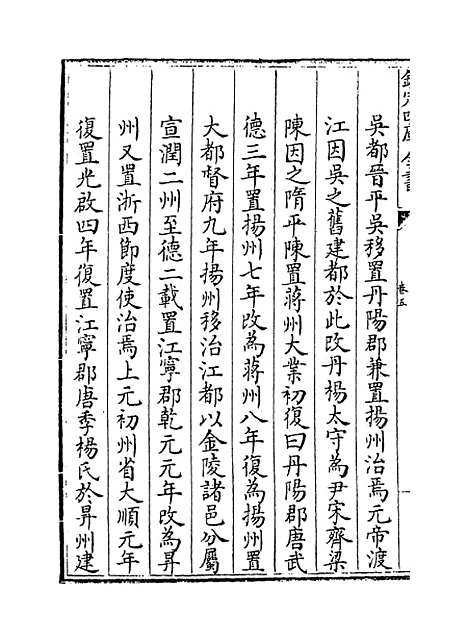 欽定四庫全書
卷五
吳都晉平吳移置丹陽郡兼置揚州治焉元帝渡
江因吳之舊建都於此改丹楊太守為尹宋齊梁
陳因之隋平陳置蔣州大業初復曰丹陽郡唐武
德三年置揚州七年改為蔣州八年復為揚州置
大都督府九年揚州移治江都以金陵諸邑分屬
宣潤二州至德二載置江寧郡乾元元年改為昇
州又置浙西節度使治焉上元初州省大順元年
復置光啟四年復置江寧郡唐季楊氏於昇州建